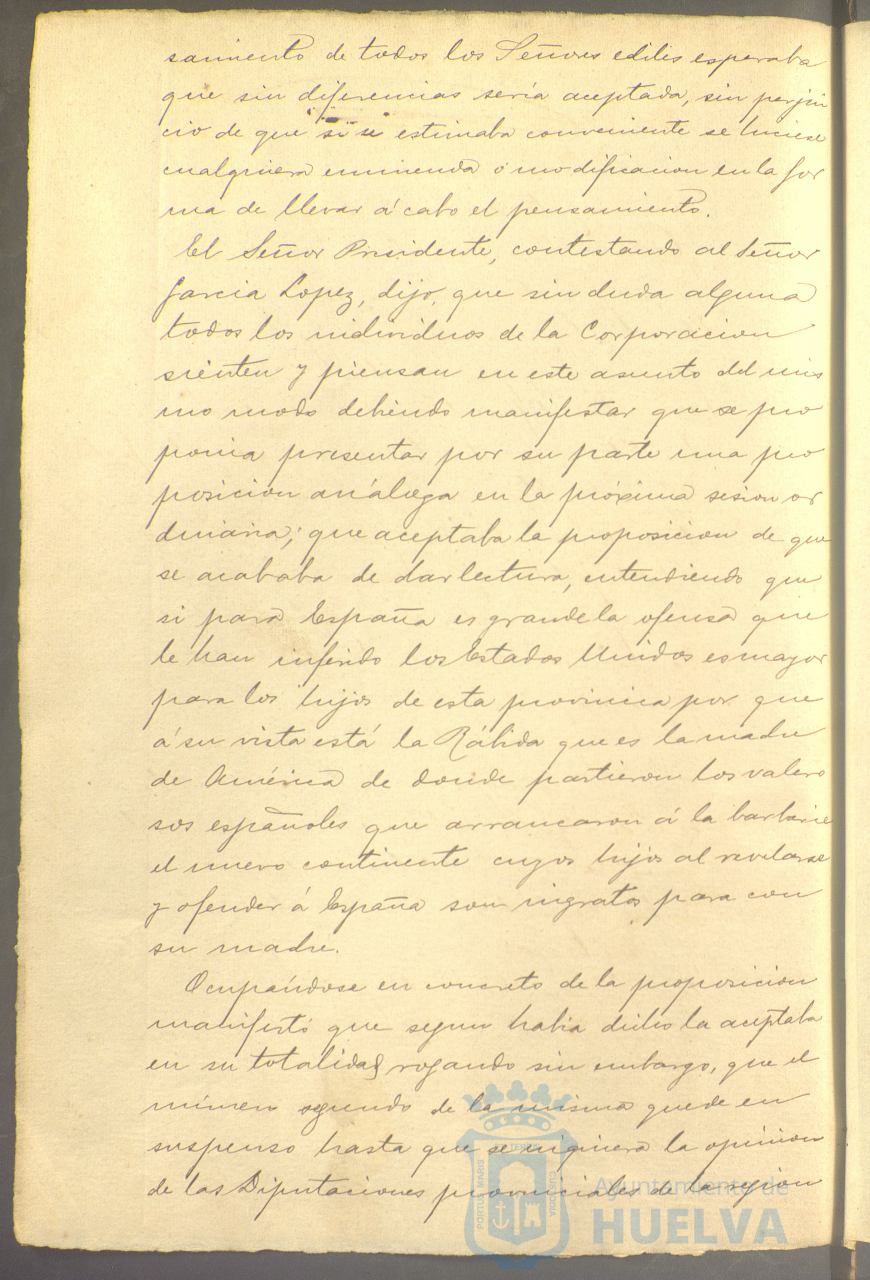 samiento de todos los Señores ediles esperaba
que sin diferencias sería aceptada, sin perjui
cio de que si se estimaba conveniente se hiciese
cualquiera enmienda ó modificacion en la for
ma de llevar á cabo el pensamiento.
El Señor Presidente, contestando al Señor
Garcia Lopez, dijo, que sin duda alguna
todos los individuos de la Corporacion
sienten y piensan en este asunto del mis
mo modo debiendo manifestar que se pro
ponia presentar por su parte una pro
posicion análoga en la próxima sesion or
dinaria; que aceptaba la proposicion de que
se acababa de dar lectura, entendiendo que
si para España es grande la ofensa que
le han inferido los Estados Unidos es mayor
para los hijos de esta provincia por que
á su vista está la Rábida que es la madre
de América de donde partieron los valero
sos españoles que arrancaron á la barbarie
el nuevo continente cuyos hijos al revelarse
y ofender á España son ingratos para con
su madre.
Ocupándose en concreto de la proposicion
manifestó que segun habia dicho la aceptaba
en su totalidad rogando sin embargo, que el
número segundo de la misma quede en
suspenso hasta que se inquiera la opinion
de las Diputaciones provinciales de la region
PORTUS MARIS
ET TERRAE
CUSTODIA
Ayuntamiento de
HUELVA